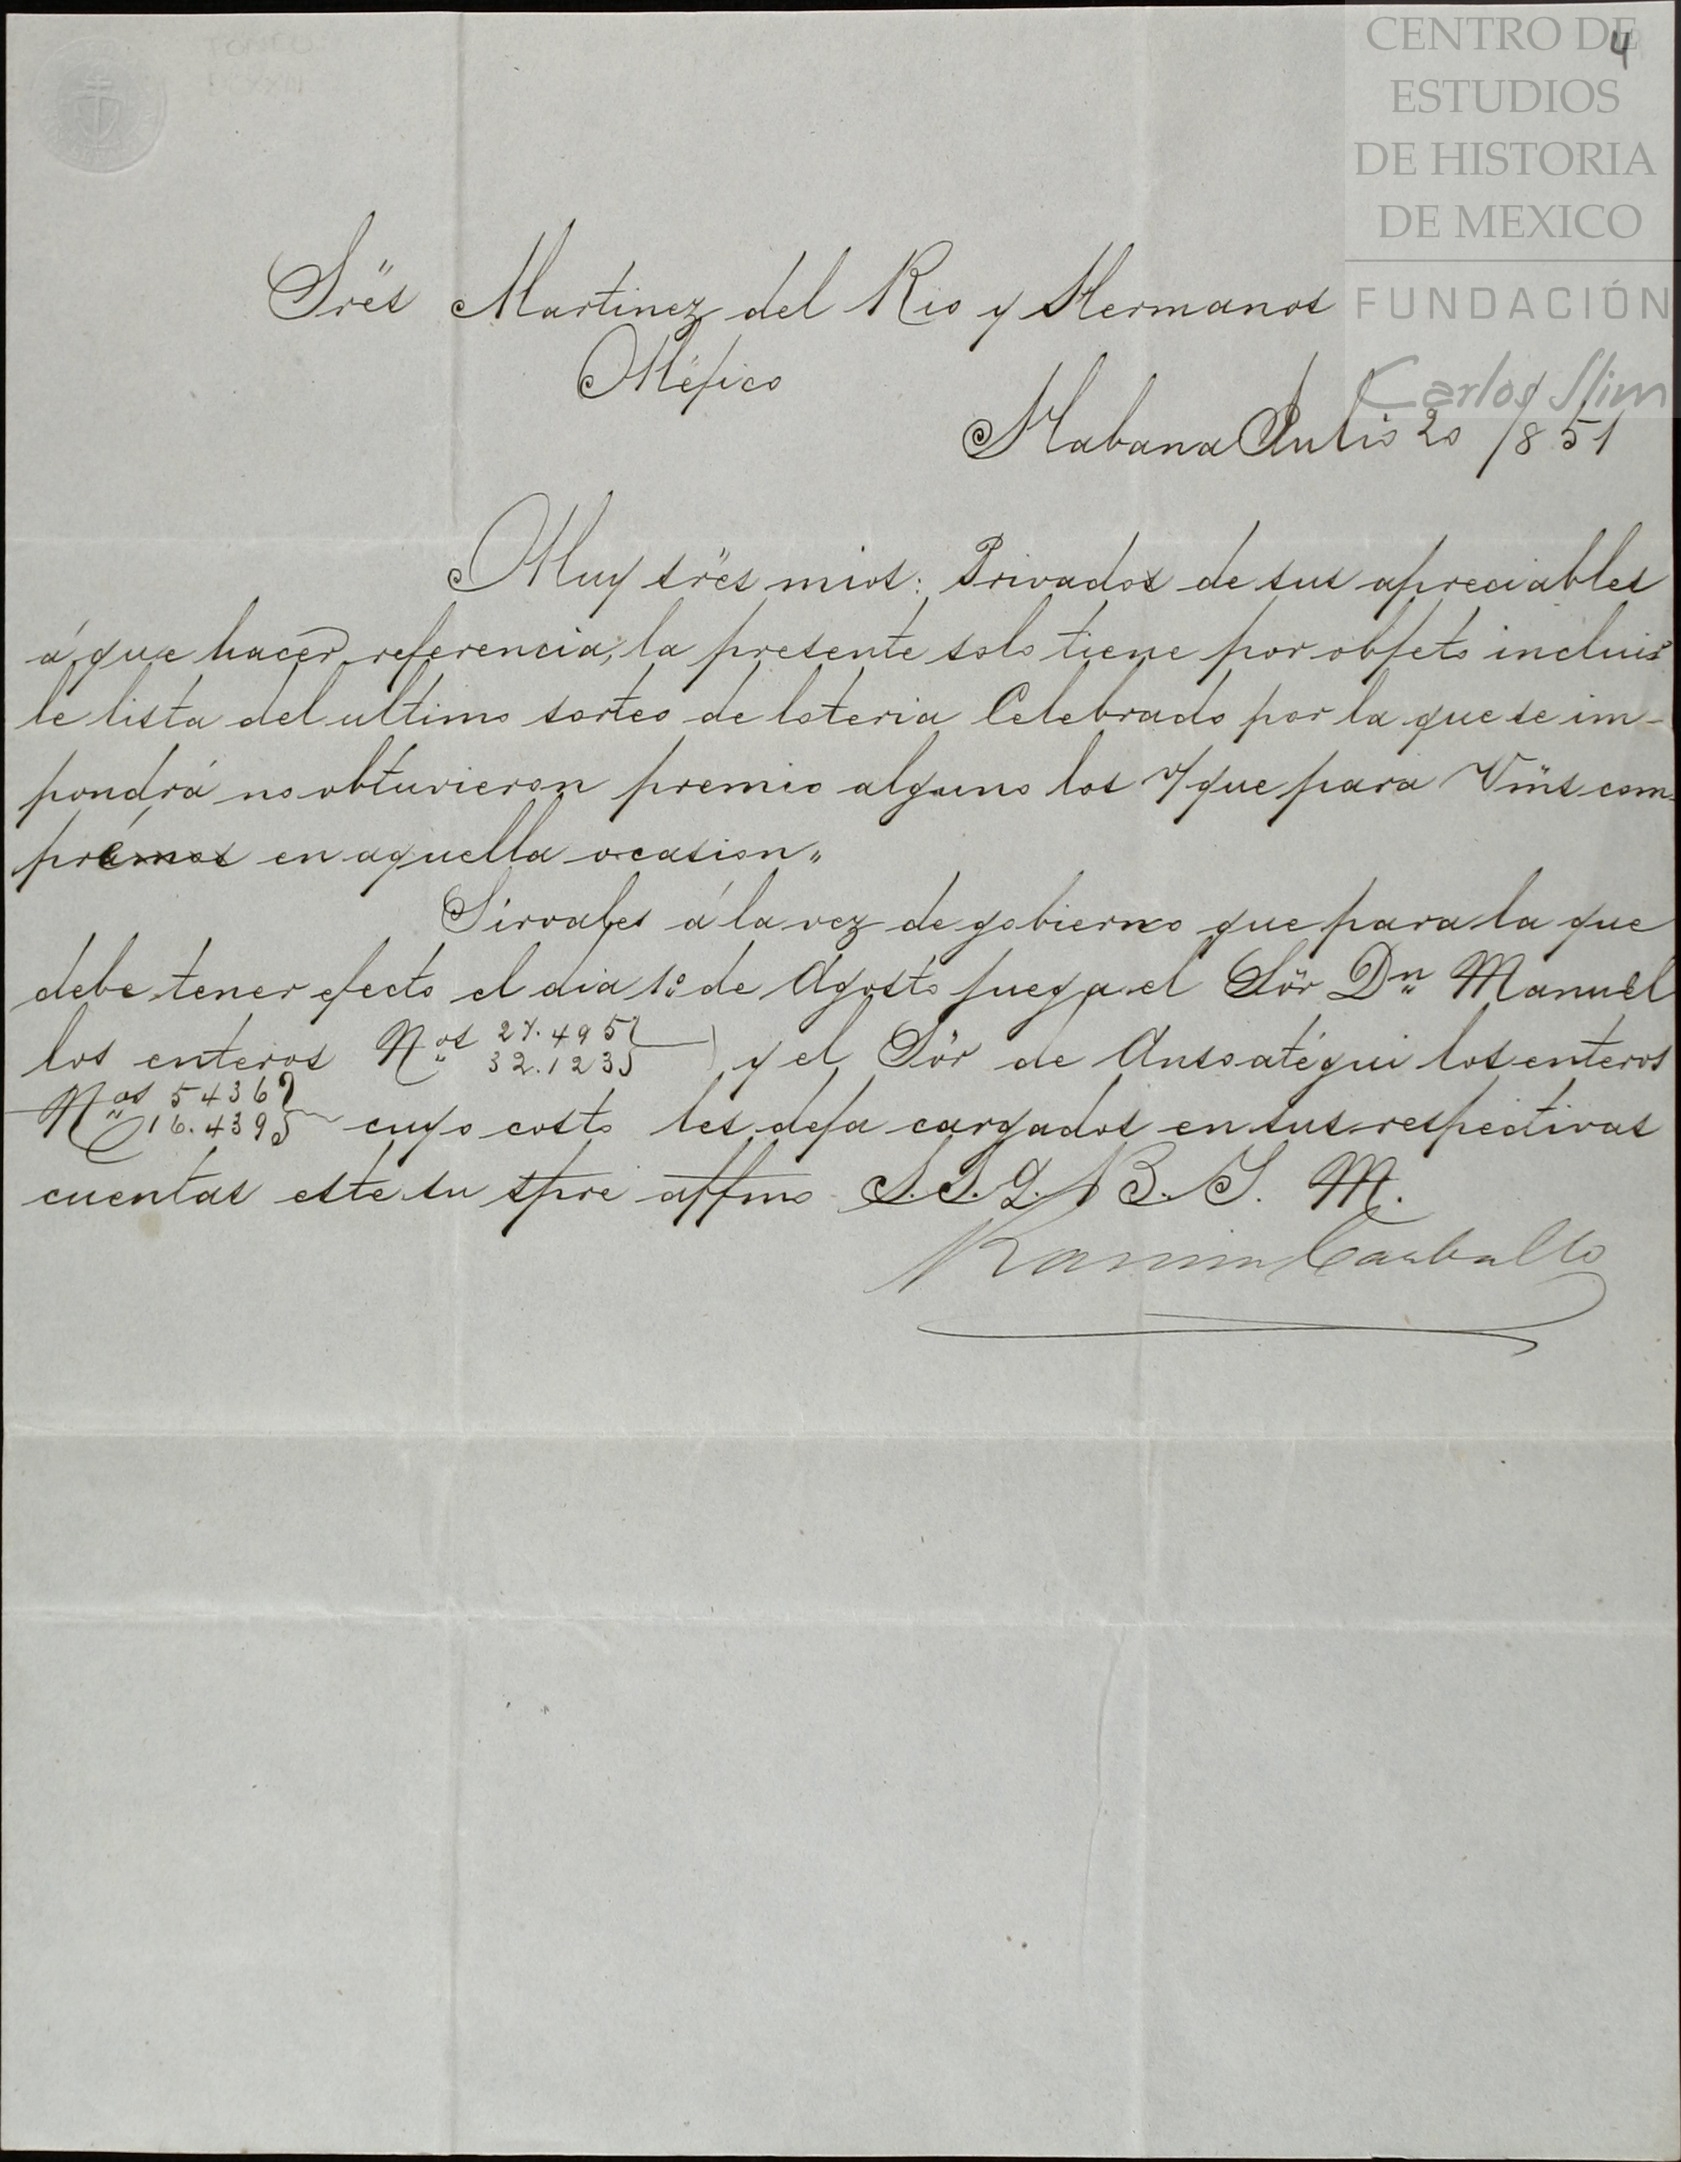 CENTRO DE
ESTUDIOS
DE HISTORIA
DE MEXICO
FUNDACIÓN
Carlos Slim
4
Sres Martinez del Rio y Hermanos
Méjico
Habana Julio 20 /851
Muy sres mios: Privados de sus apreciables
á que hacer referencia, la presente solo tiene por objeto incluir
le lista del ultimo sorteo de loteria Celebrado por la que se im-
pondrá no obtuvieron premio alguno los que para Vms com-
en aquella ocasion„
Sirvales á la vez de gobierno que para la que
debe tener efecto el dia 1º de Agosto juega el Sor Dn Manuel
los enteros Nos 27.495
32.123 y el Sor de Ansoatégui los enteros
Nos 5436
16.439 cuyo costo les deja cargados en sus respectivas
cuentas este su spre affmo S.S.Q.B.S.M.
Ramon Carballo